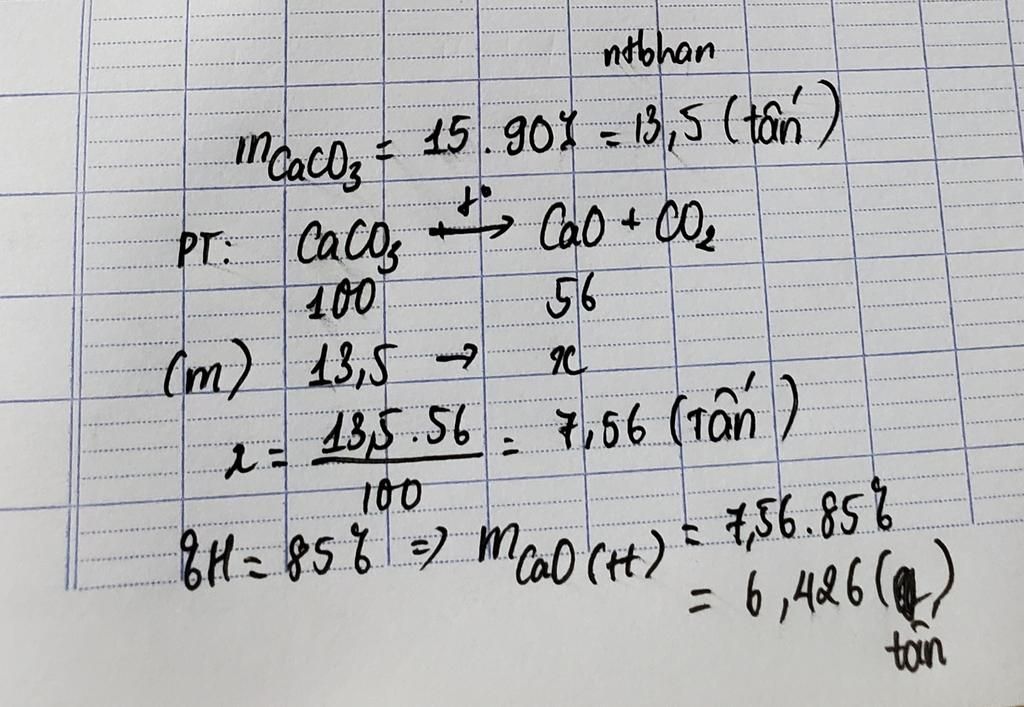 ntbhan
mCaCO₃ = 15 . 90% = 13,5 (tấn)
PT: CaCO₃ —t°→ CaO + CO₂
100 56
(m) 13,5 → x
x = 13,5 . 56 / 100 = 7,56 (Tấn)
%H = 85% => mCaO (H) = 7,56 . 85%
= 6,426 ( )
tấn